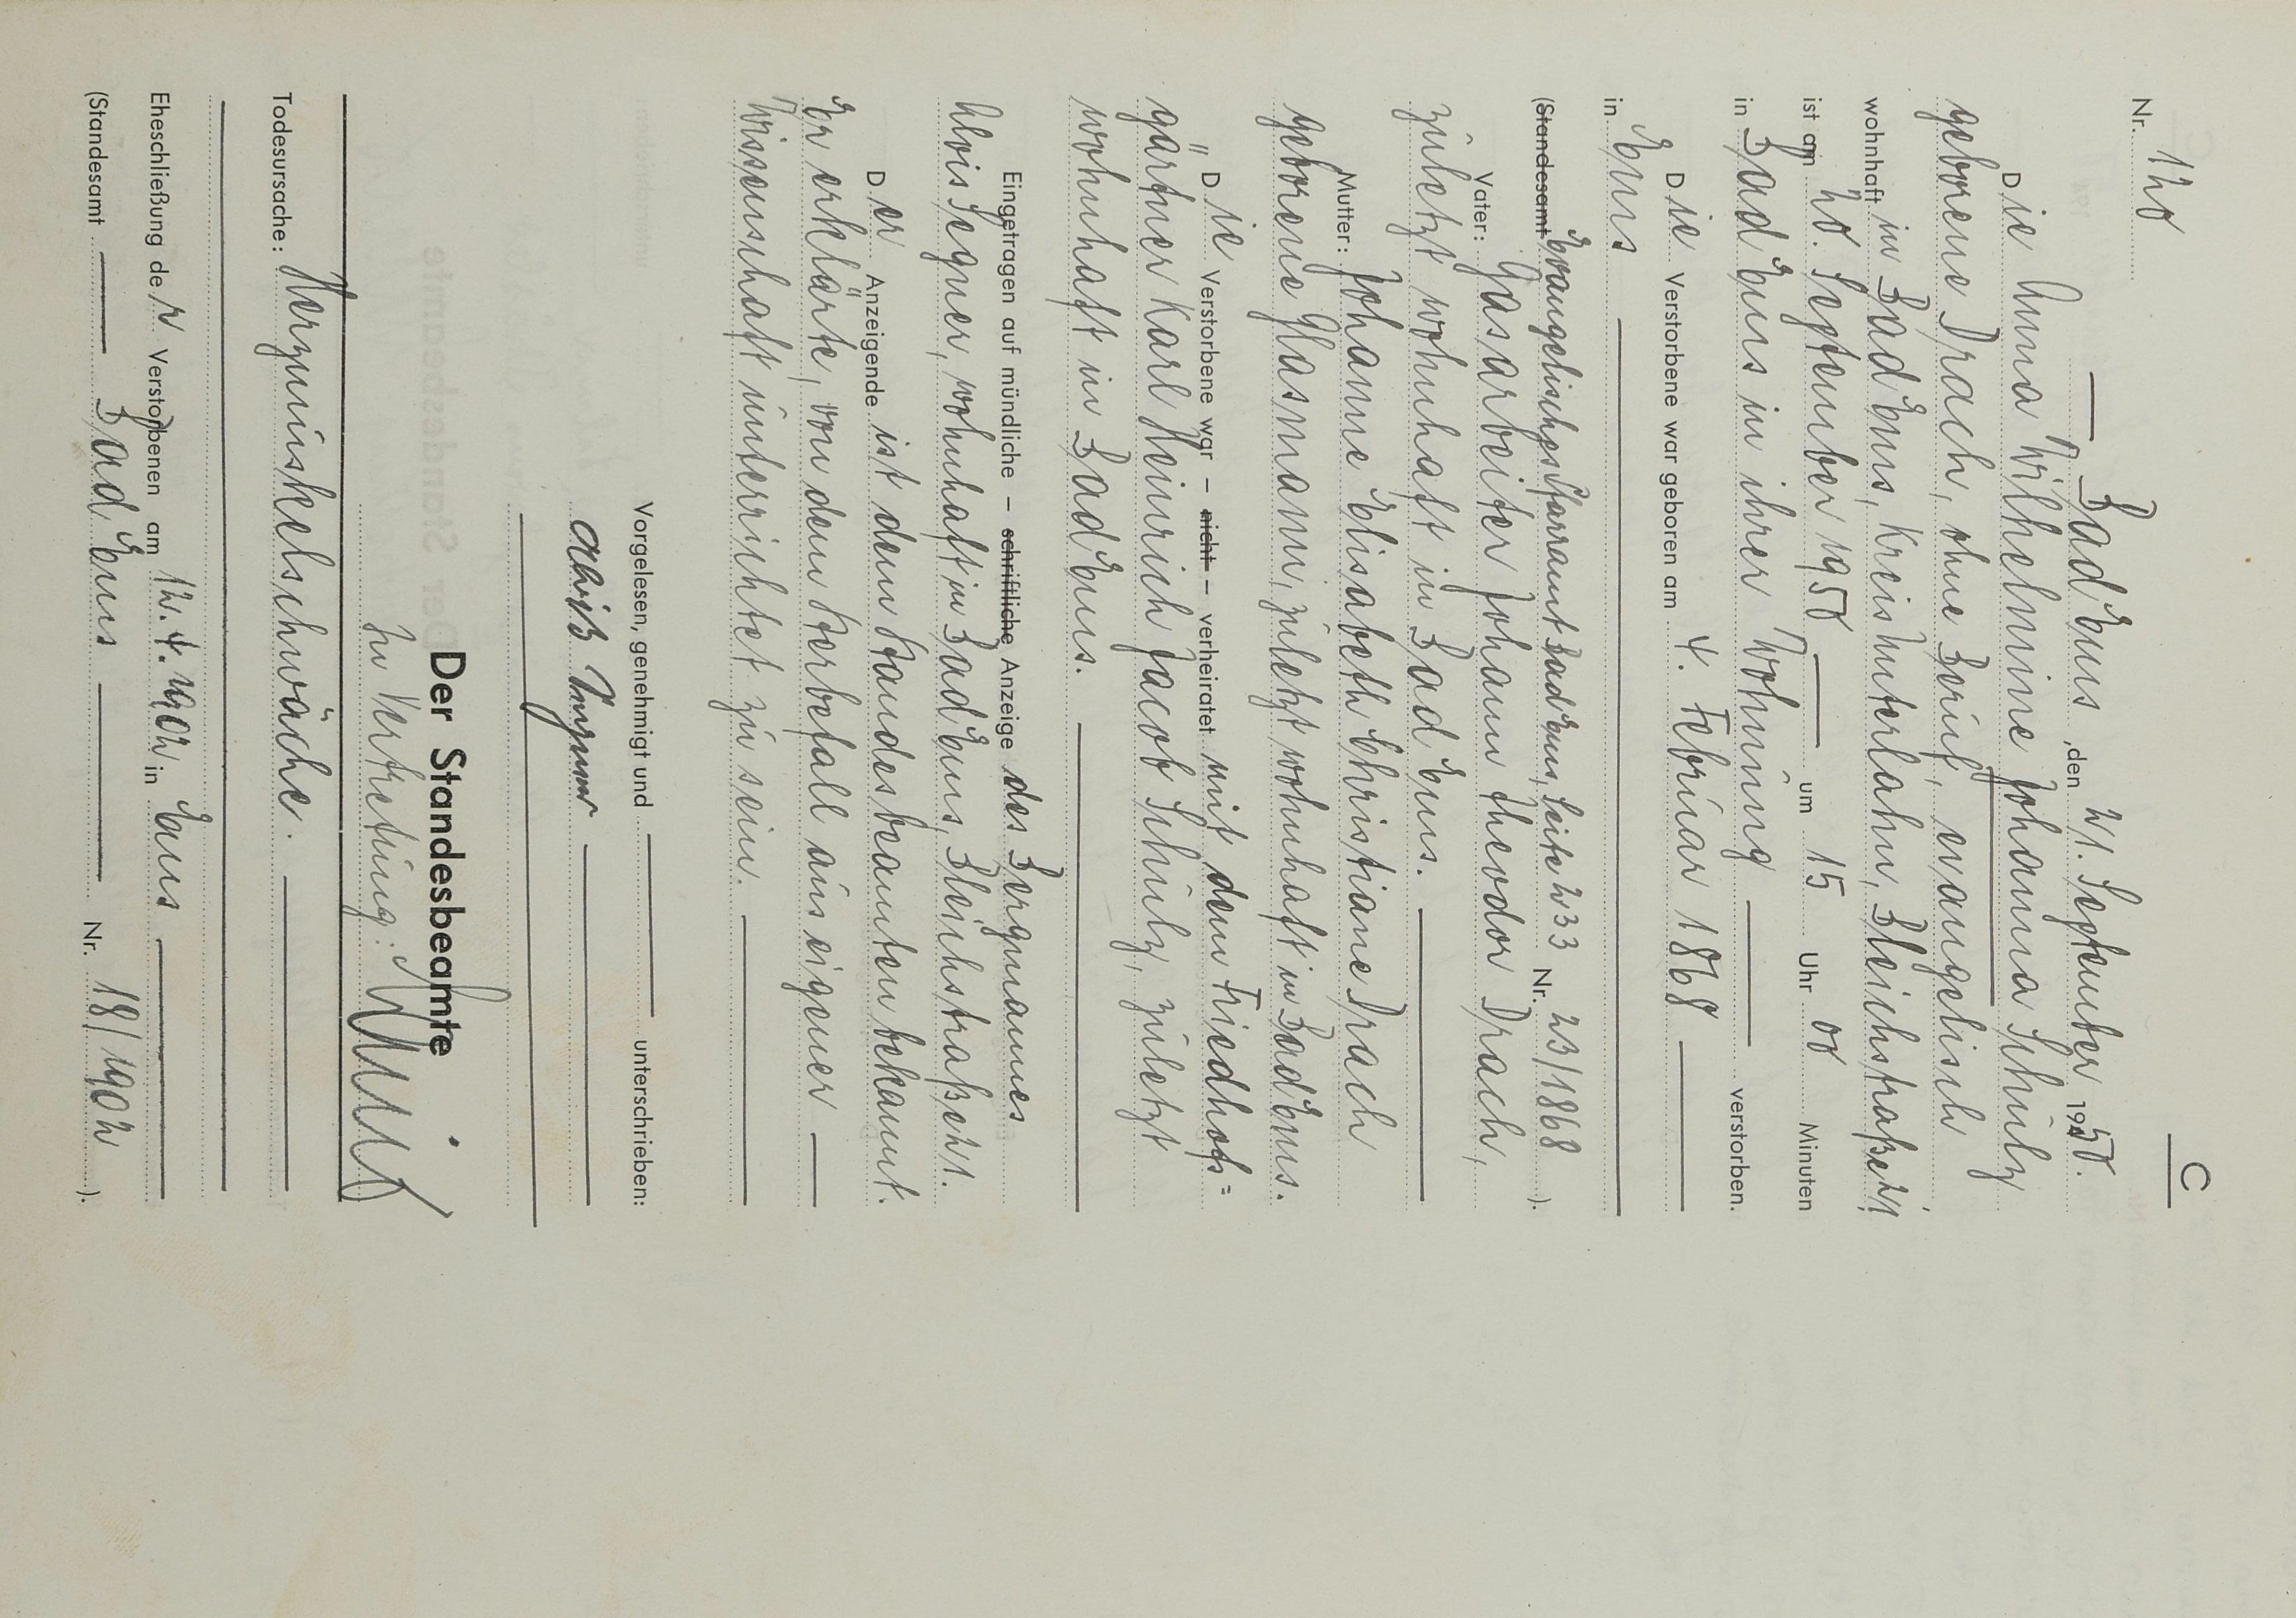 C
Nr. 120
Bad Ems, den 21. September 1950.
Die Anna Wilhelmine Johanna Schulz
geborene Drach, ohne Beruf, evangelisch
wohnhaft in Bad Ems, Kreis Unterlahn, Bleichstraße 21
ist am 20. September 1950 um 15 Uhr 00 Minuten
in Bad Ems in ihrer Wohnung verstorben.
Die Verstorbene war geboren am 4. Februar 1868
in Ems
(Standesamt Evangelisches Pfarramt Bad Ems, Seite 233 Nr. 23/1868 ).
Vater: Gasarbeiter Johann Theodor Drach,
zuletzt wohnhaft in Bad Ems.
Mutter: Johanne Elisabeth Christiane Drach
geborene Glasmann, zuletzt wohnhaft in Bad Ems.
Die Verstorbene war – nicht – verheiratet mit dem Friedhofs=
gärtner Karl Heinrich Jacob Schulz, zuletzt
wohnhaft in Bad Ems.
Eingetragen auf mündliche – schriftliche Anzeige des Bergmannes
Alois Segner, wohnhaft in Bad Ems, Bleichstraße 21.
Der Anzeigende ist dem Standesbeamten bekannt.
Er erklärte, von dem Sterbefall aus eigener
Wissenschaft unterrichtet zu sein.
Vorgelesen, genehmigt und unterschrieben:
Alois Segner
Der Standesbeamte
In Vertretung:
Todesursache: Herzmuskelschwäche.
Eheschließung der Verstorbenen am 12.4.1902 in Ems
(Standesamt Bad Ems Nr. 18/1902 ).